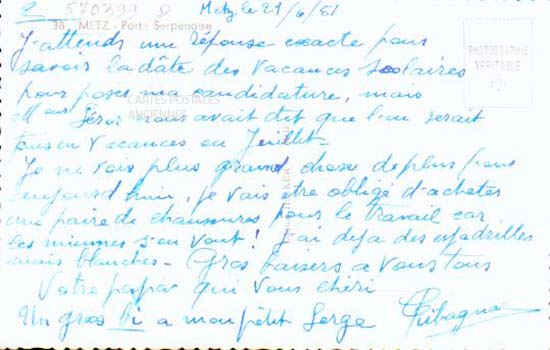 2 570399 D Metz le 27/6/51
36 - METZ - Porte Serpenoise
J'attends une réponse exacte pour
savoir la dâte des vacances scolaires
pour poser ma candidature, mais
vous avait dit que l'on serait
tous en vacances en Juillet -
Je ne vois plus grand chose de plus pour
aujourd'hui, je vais être obligé d'acheter
une paire de chaussures pour le travail car
les miennes s'en vont! J'ai deja des espadrilles
mais blanches - Gros baisers a vous tous
Votre papa qui vous chéri
Un gros bi a mon petit Serge
PHOTOGRAPHIE
VERITABLE
CARTES POSTALES
ANCIENNES